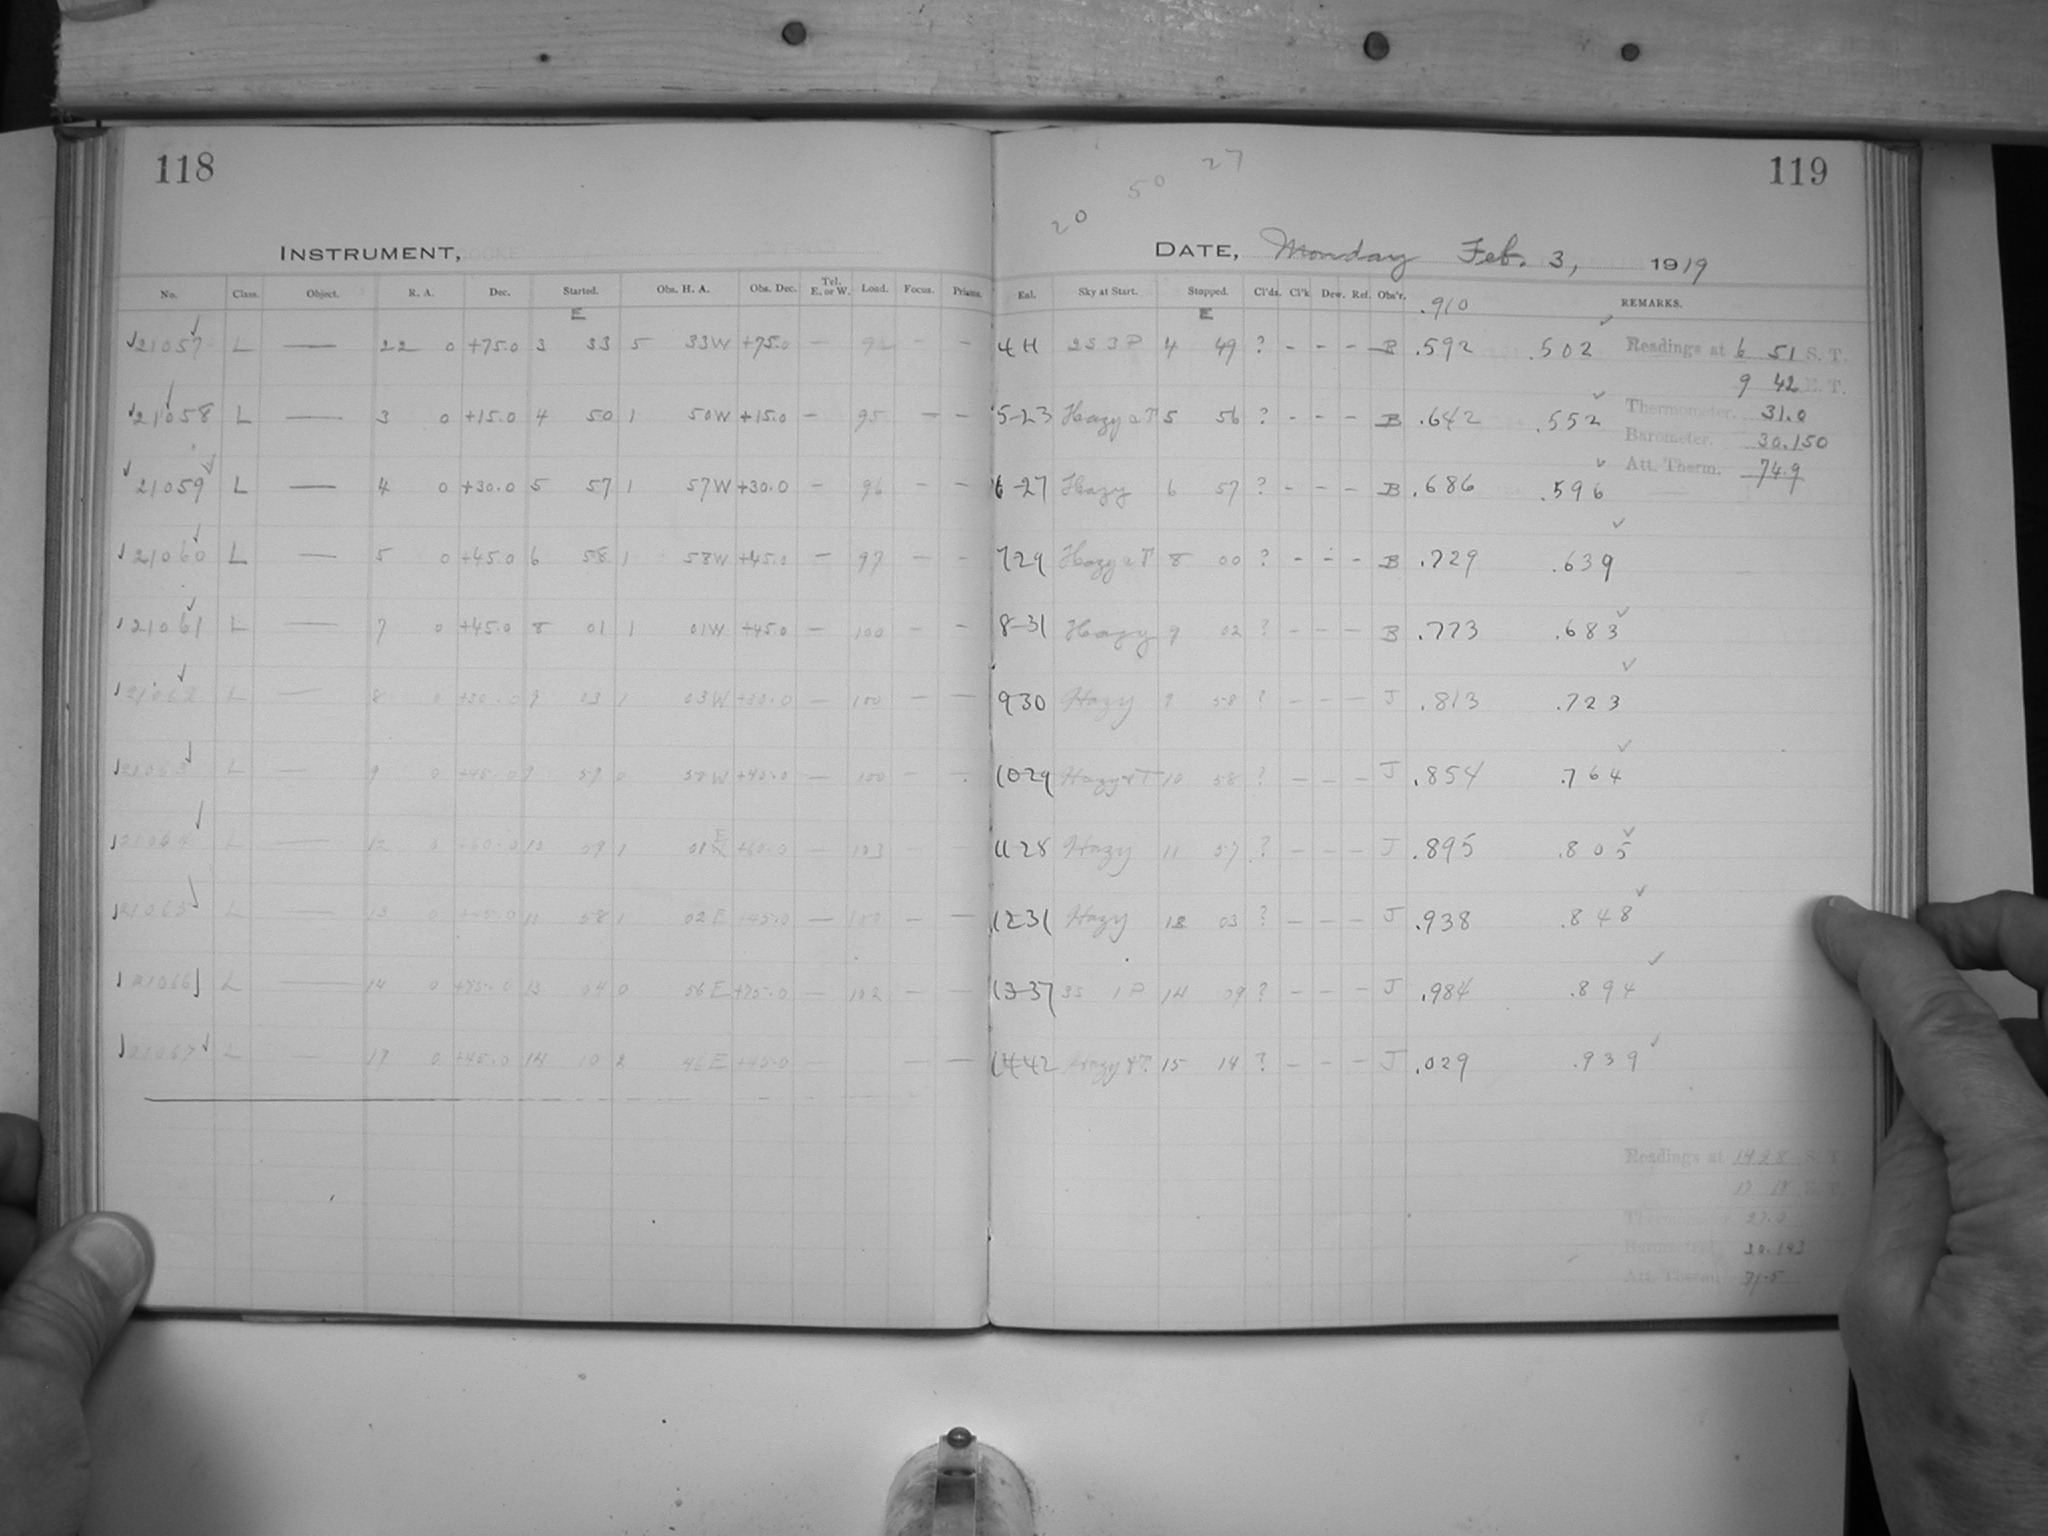 118
INSTRUMENT,
No. Class. Object. R. A. Dec. Started. Obs. H. A. Obs. Dec. Tel. E. or W. Load. Focus. Prisms.
E
21057 L — 22 0 +75.0 3 33 5 33W +75.0 — — —
21058 L — 3 0 +15.0 4 50 1 50W +15.0 — 95 — —
21059 L — 4 0 +30.0 5 57 1 57W +30.0 — 96 — —
21060 L — 5 0 +45.0 6 58 1 58W +45.0 — 97 — —
21061 L — 7 0 +45.0 8 01 1 01W +45.0 — 100 — —
21062 L — 8 0 +30.0 9 03 1 03W +30.0 — 100 — —
21063 L — 9 0 +45.0 9 59 0 +45.0 — 100 — —
21064 L — 12 0 +60.0 10 59 1 +60.0 — 103 — —
21065 L — 13 0 +45.0 11 58 1 02E +45.0 — 100 — —
21066 L — 14 0 +75.0 13 04 0 56E +75.0 — 102 — —
21067 L — 17 0 +45.0 14 10 2 46E +45.0 — — —
119
27
50
20
DATE, Monday Feb. 3, 1919
Exl. Sky at Start. Stopped. Cl'ds. Cl'k Dew. Ref. Obs'r. REMARKS.
.910
E
4 11 2S 3P 4 49 ? - - - B .592 .502
5-23 Hazy 5 56 ? - - - B .642 .552
6-27 Hazy 6 57 ? - - - B .686 .596
7 29 Hazy 8 00 ? - - - B .729 .639
8-31 Hazy 9 02 ? - - - B .773 .683
9 30 Hazy 9 58 ? - - - J .813 .723
10 29 Hazy 10 58 ? - - - J .854 .764
11 28 Hazy 11 57 ? - - - J .895 .805
12 31 Hazy 03 ? - - - J .938 .848
13-37 3S 1P 14 09 ? - - - J .984 .894
14 42 Hazy 15 14 ? - - - J .029 .939
Readings at 6 51 S. T.
9 42 E. T.
Thermometer. 31.0
Barometer. 30.150
Att. Therm. 74.9
Readings at 14 28 S. T.
17 18 E. T.
Thermometer 27.0
Barometer 30.143
Att. Therm 71.5